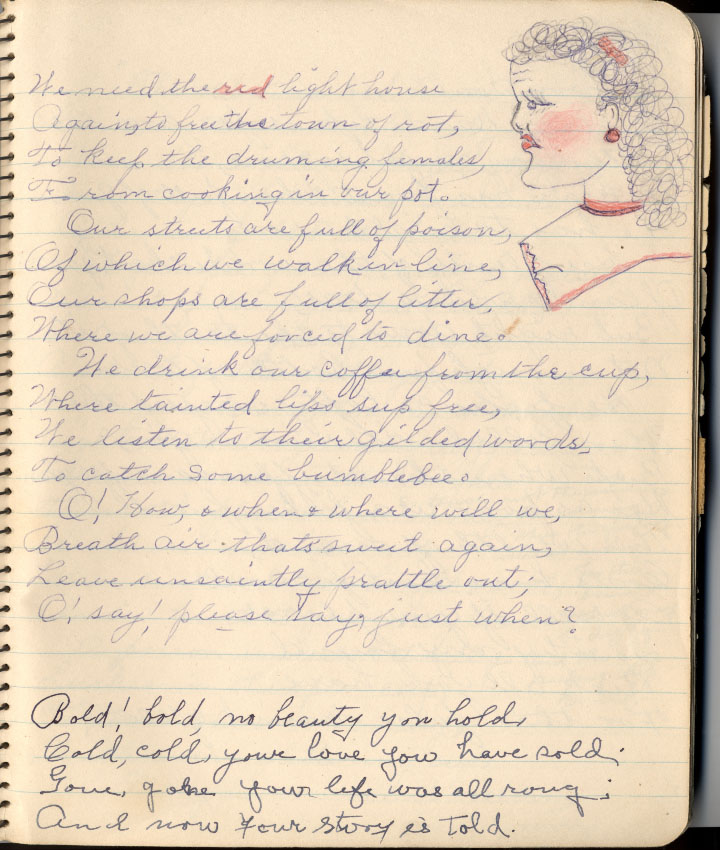 We need the red light house
Again, to free the town of rot,
To keep the druming females,
From cooking in our pot.
Our streets are full of poison,
Of which we walk in line,
Our shops are full of litter,
Where we are forced to dine.
We drink our coffee from the cup,
Where tainted lips sup free,
We listen to their gilded words,
To catch some bumblebee.
O! How, & when & where will we,
Breath air thats sweet again,
Leave unsaintly prattle out;
O! say! please say, just when?
Bold! bold, no beauty you hold,
Cold, cold, youre love you have sold;
Gone, gone your life was all rong;
And now your story is told.